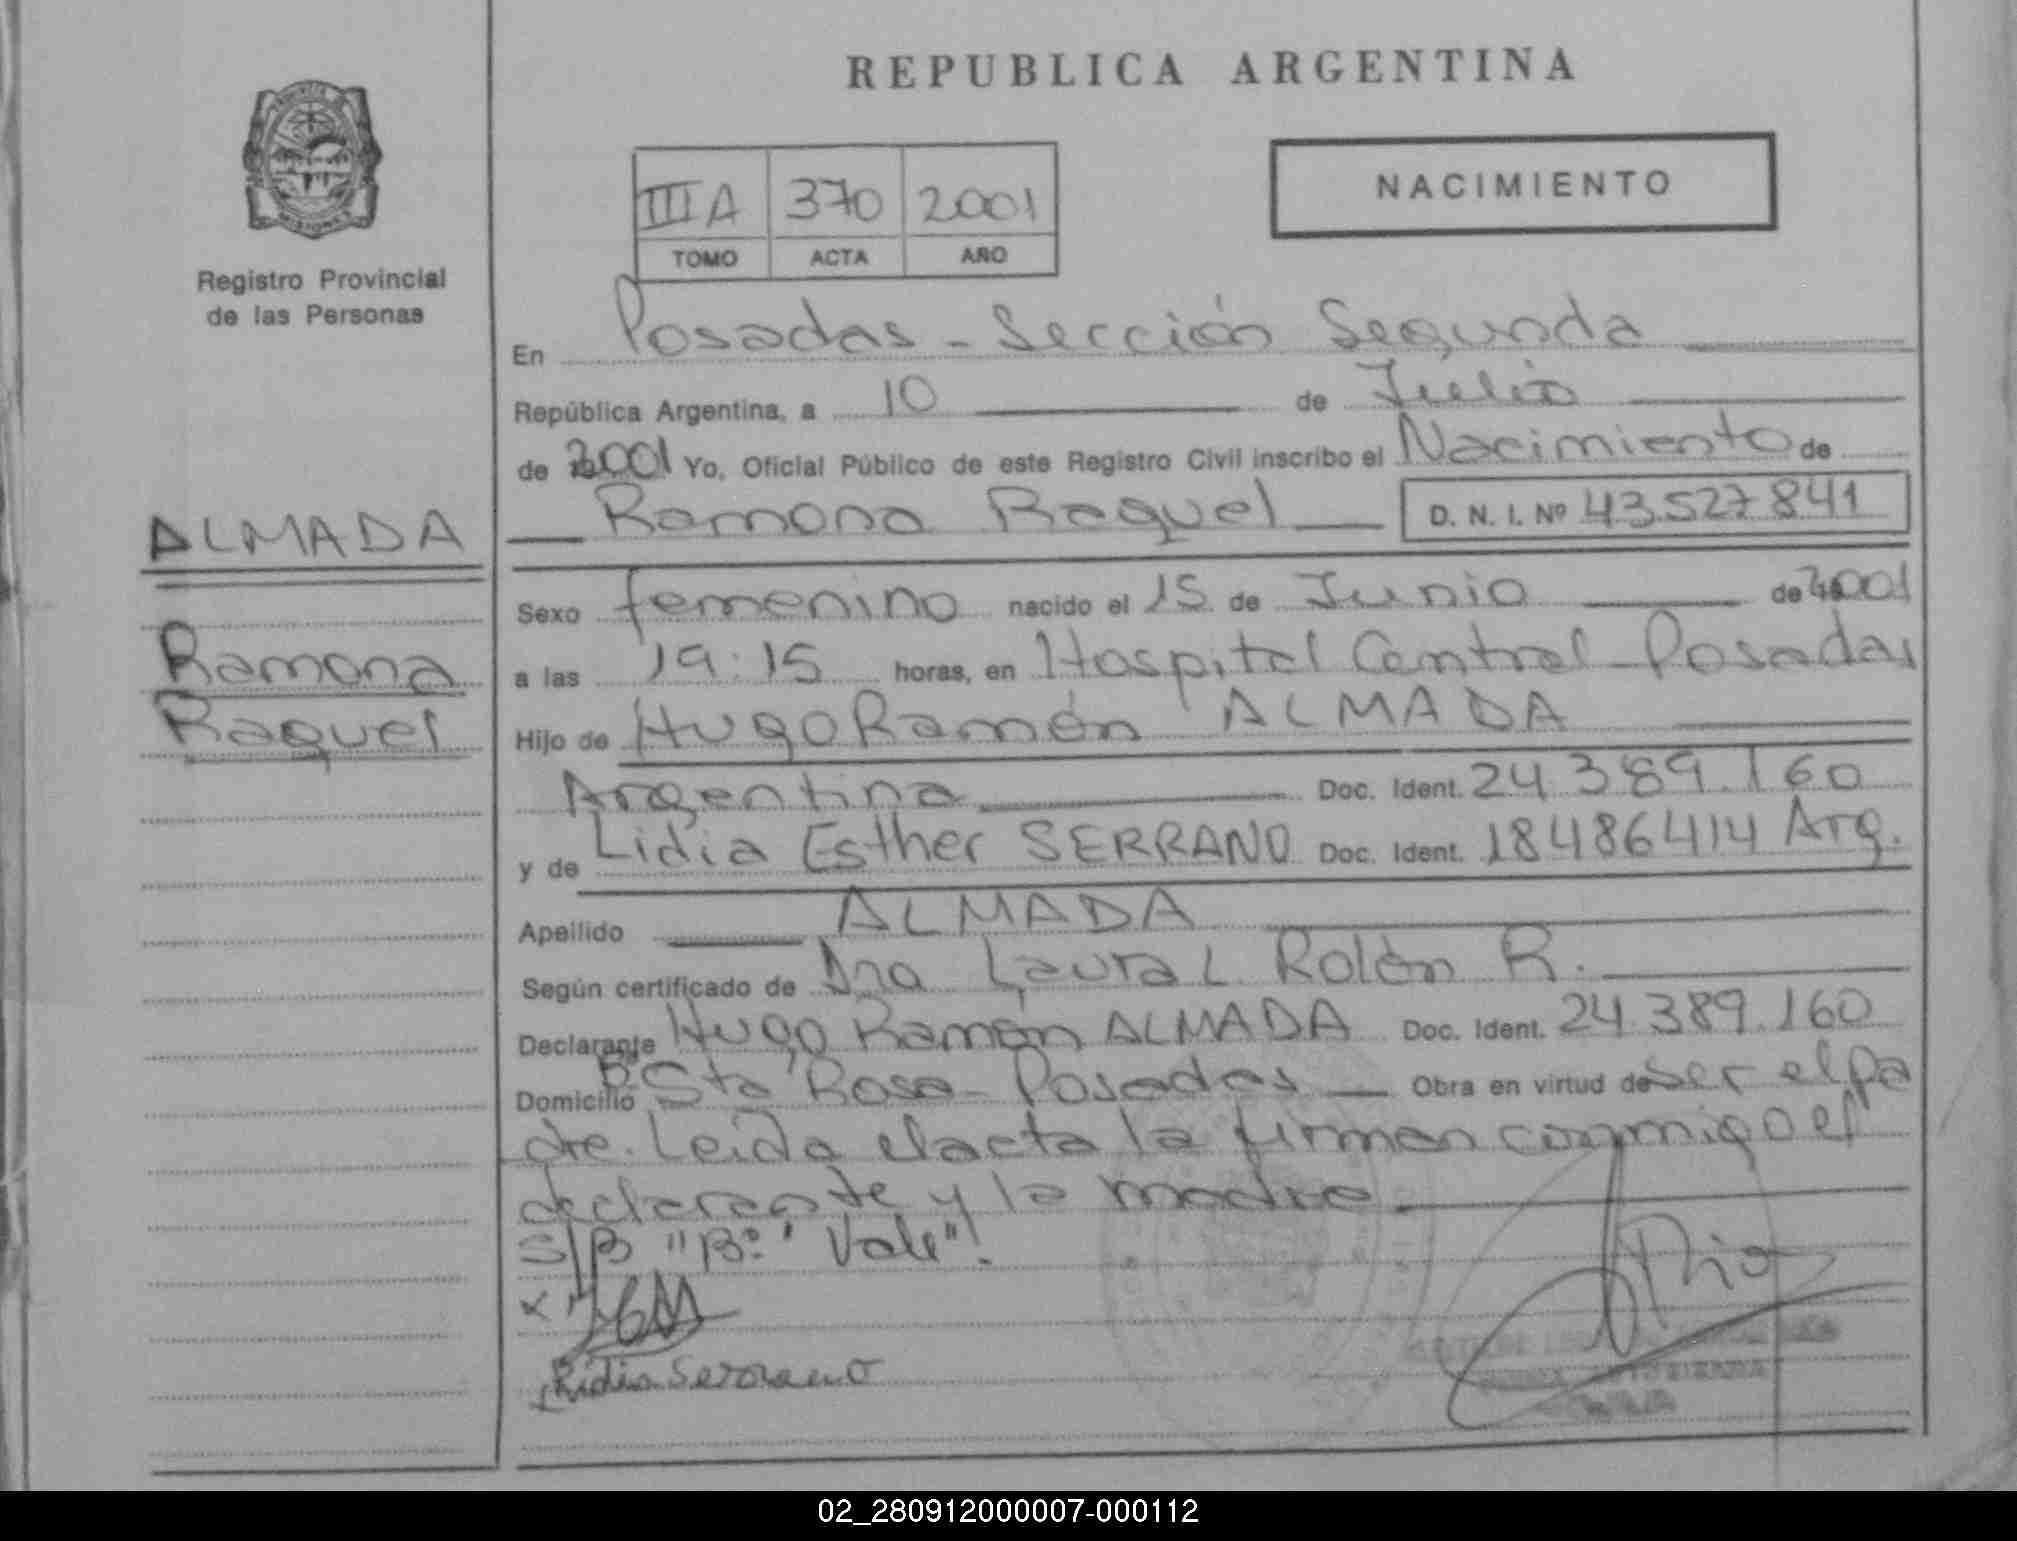 REPUBLICA ARGENTINA
NACIMIENTO
III A 370 2001
TOMO ACTA AÑO
Registro Provincial
de las Personas
En Posadas - Sección Segunda
República Argentina, a 10 de Julio
de 2001 Yo, Oficial Público de este Registro Civil inscribo el Nacimiento de
Ramona Raquel D. N. I. Nº 43.527.841
ALMADA
Ramona
Raquel
Sexo femenino nacido el 15 de Junio de 2001
a las 19:15 horas, en Hospital Central - Posadas
Hijo de Hugo Ramón ALMADA
Argentina Doc. Ident. 24.389.160
y de Lidia Esther SERRANO Doc. Ident. 18486414 Arg.
Apellido ALMADA
Según certificado de Dra Laura L. Rolón R.
Declarante Hugo Ramón ALMADA Doc. Ident. 24.389.160
Domicilio Bº Sta Rosa - Posadas Obra en virtud de ser el pa
dre. Leída el acta la firman conmigo el
declarante y la madre
S/B "Bº" Vale".
Lidia Serrano
02_280912000007-000112